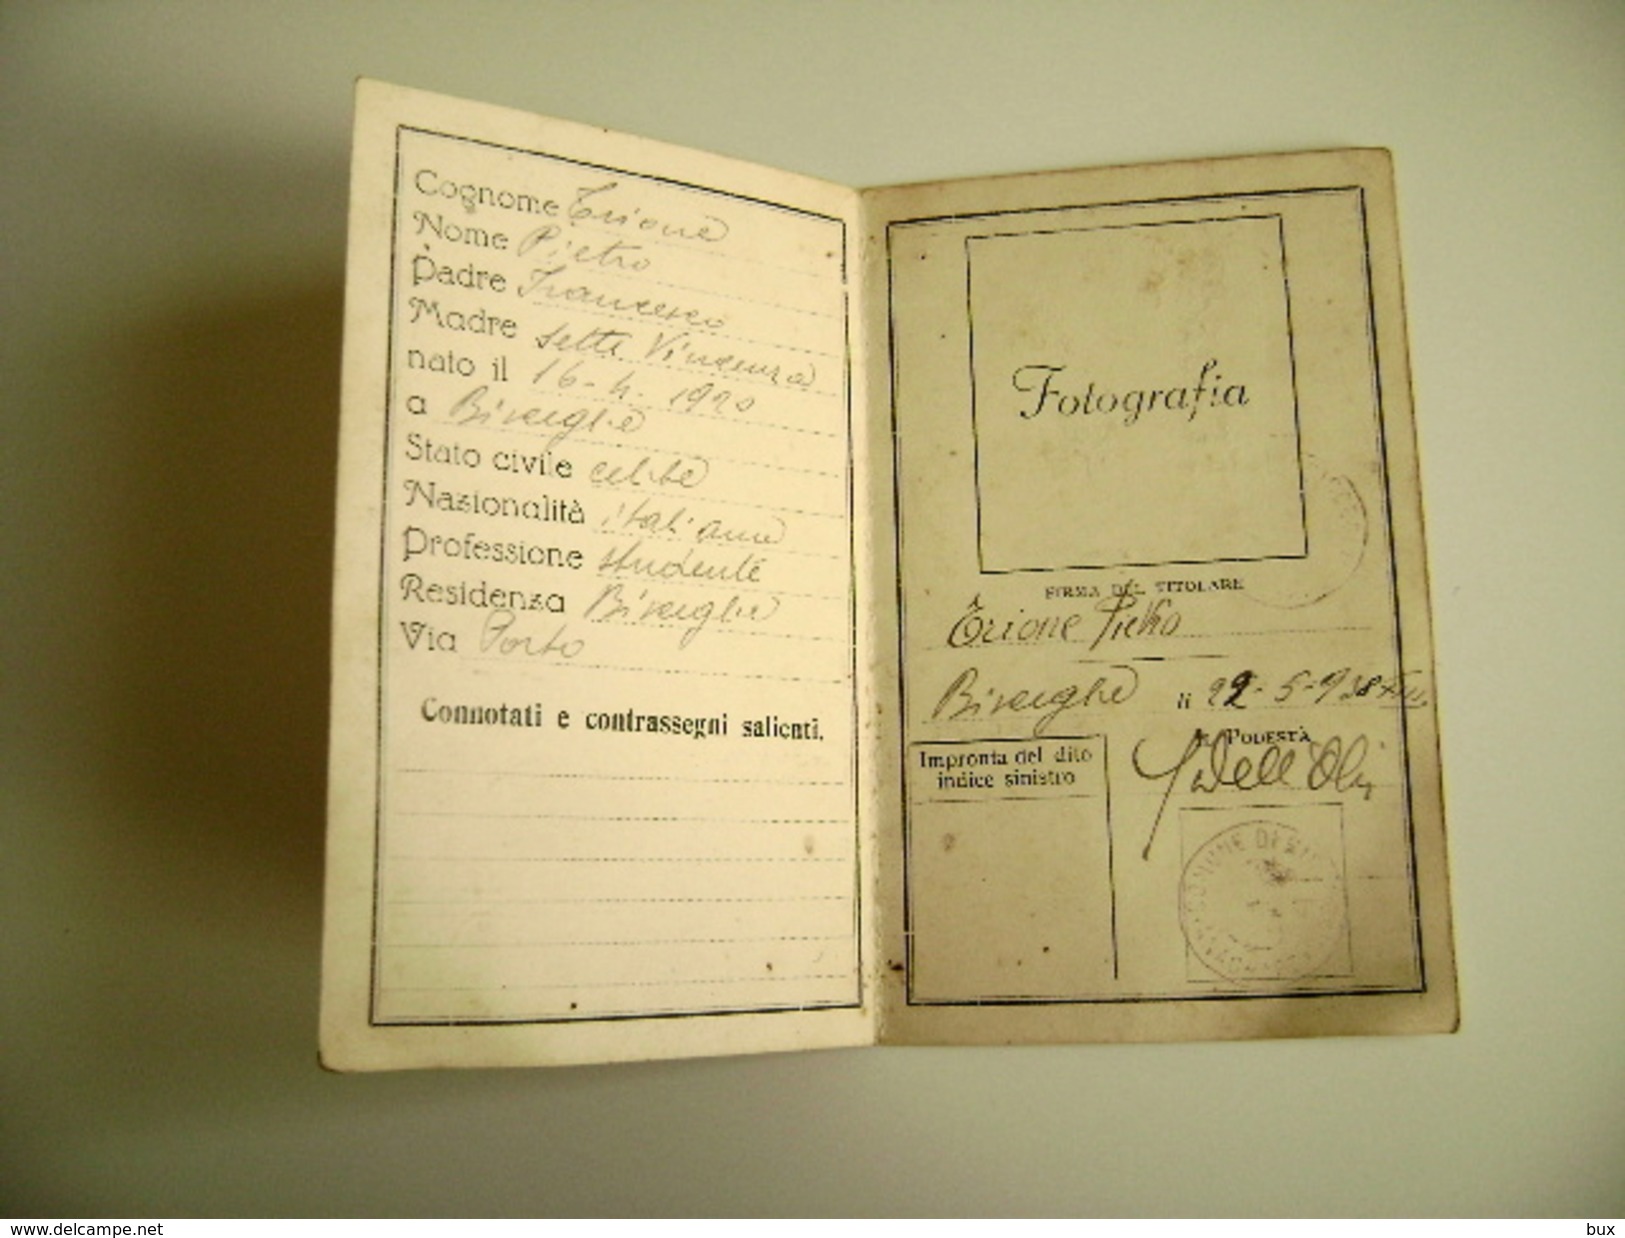 Cognome Trione
Nome Pietro
Padre Francesco
Madre Sette Vincenza
nato il 16-4-1920
a Bisceglie
Stato civile celibe
Nazionalità italiana
Professione studente
Residenza Bisceglie
Via Porto
Connotati e contrassegni salienti.
Fotografia
FIRMA DEL TITOLARE
Trione Pietro
Bisceglie li 22-5-938
IL PODESTÀ
Dell'Olio
Impronta del dito
indice sinistro
COMUNE DI
www.delcampe.net
bux